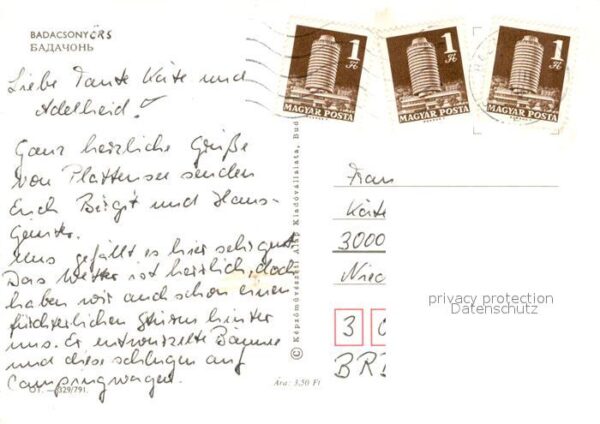 BADACSONYÖRS
БАДАЧОНЬ
Liebe Tante Käte und
Adelheid!
Ganz herzliche Grüße
von Plattensee senden
Euch Birgit und Hans-
Günter.
Uns gefällt es hier sehr gut.
Das Wetter ist herrlich, doch
haben wir auch schon einen
fürchterlichen Sturm hinter
uns. Er entwurzelte Bäume
und diese schlugen auf
Campingwagen.
OT. — 329/791.
Ára: 3,50 Ft
© Képzőművészeti Alap Kiadóvállalata, Bud
1 Ft
MAGYAR POSTA
1 Ft
MAGYAR POSTA
1 Ft
MAGYAR POSTA
Frau
Käte
3000
privacy protection
Datenschutz
3
BRD